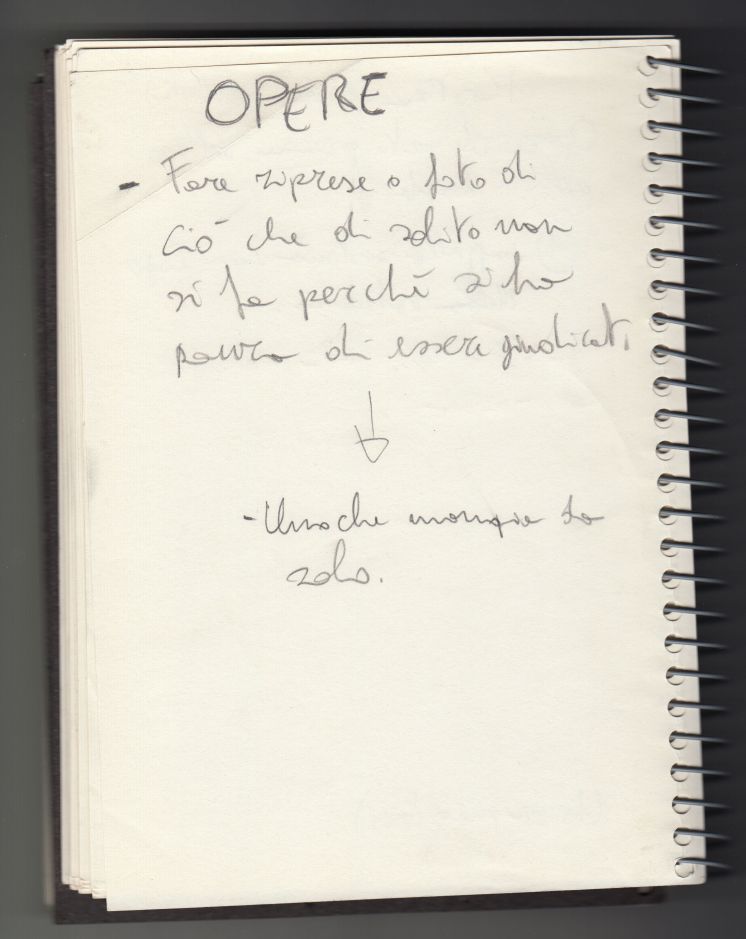 OPERE
- Fare riprese o foto di
ciò che di solito non
si fa perché si ha
paura di essere giudicati
- Uno che mangia da
solo.